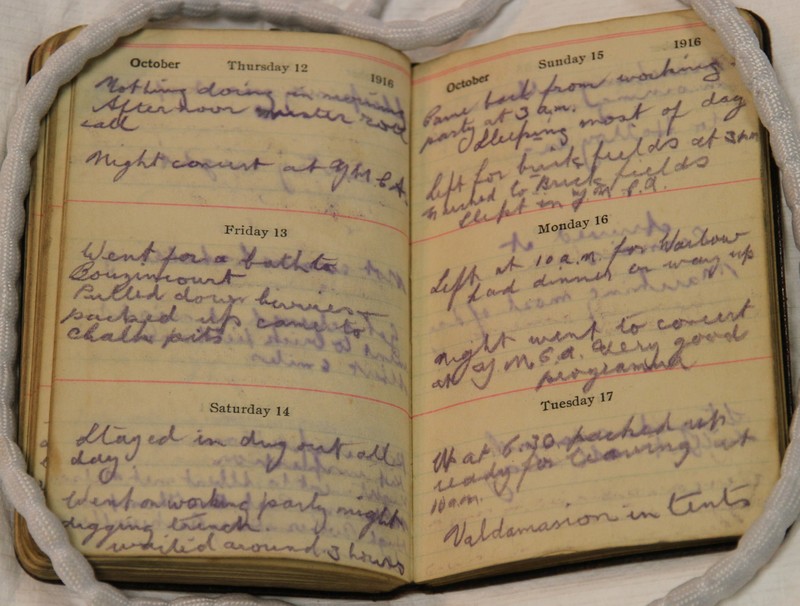 October Thursday 12 1916
Nothing doing in morning
Afternoon muster roll
call
Night concert at Y.M.C.A.
Friday 13
Went for a bath to
Bouzincourt
Pulled down bivvies +
packed up came to
chalk pits
Saturday 14
Stayed in dug out all
day
Went on working party night
digging trench
waited around 3 hours
October Sunday 15 1916
Came back from working
party at 3 am.
Sleeping most of day
Left for brick fields at 3 pm
marched to Brick fields
Slept in Y.M.C.A.
Monday 16
Left at 10 a.m. for Warloy
had dinner on way up
Night went to concert
at Y.M.C.A. Very good
programme
Tuesday 17
Up at 6.30 packed up
ready for leaving at
10 am.
in tents